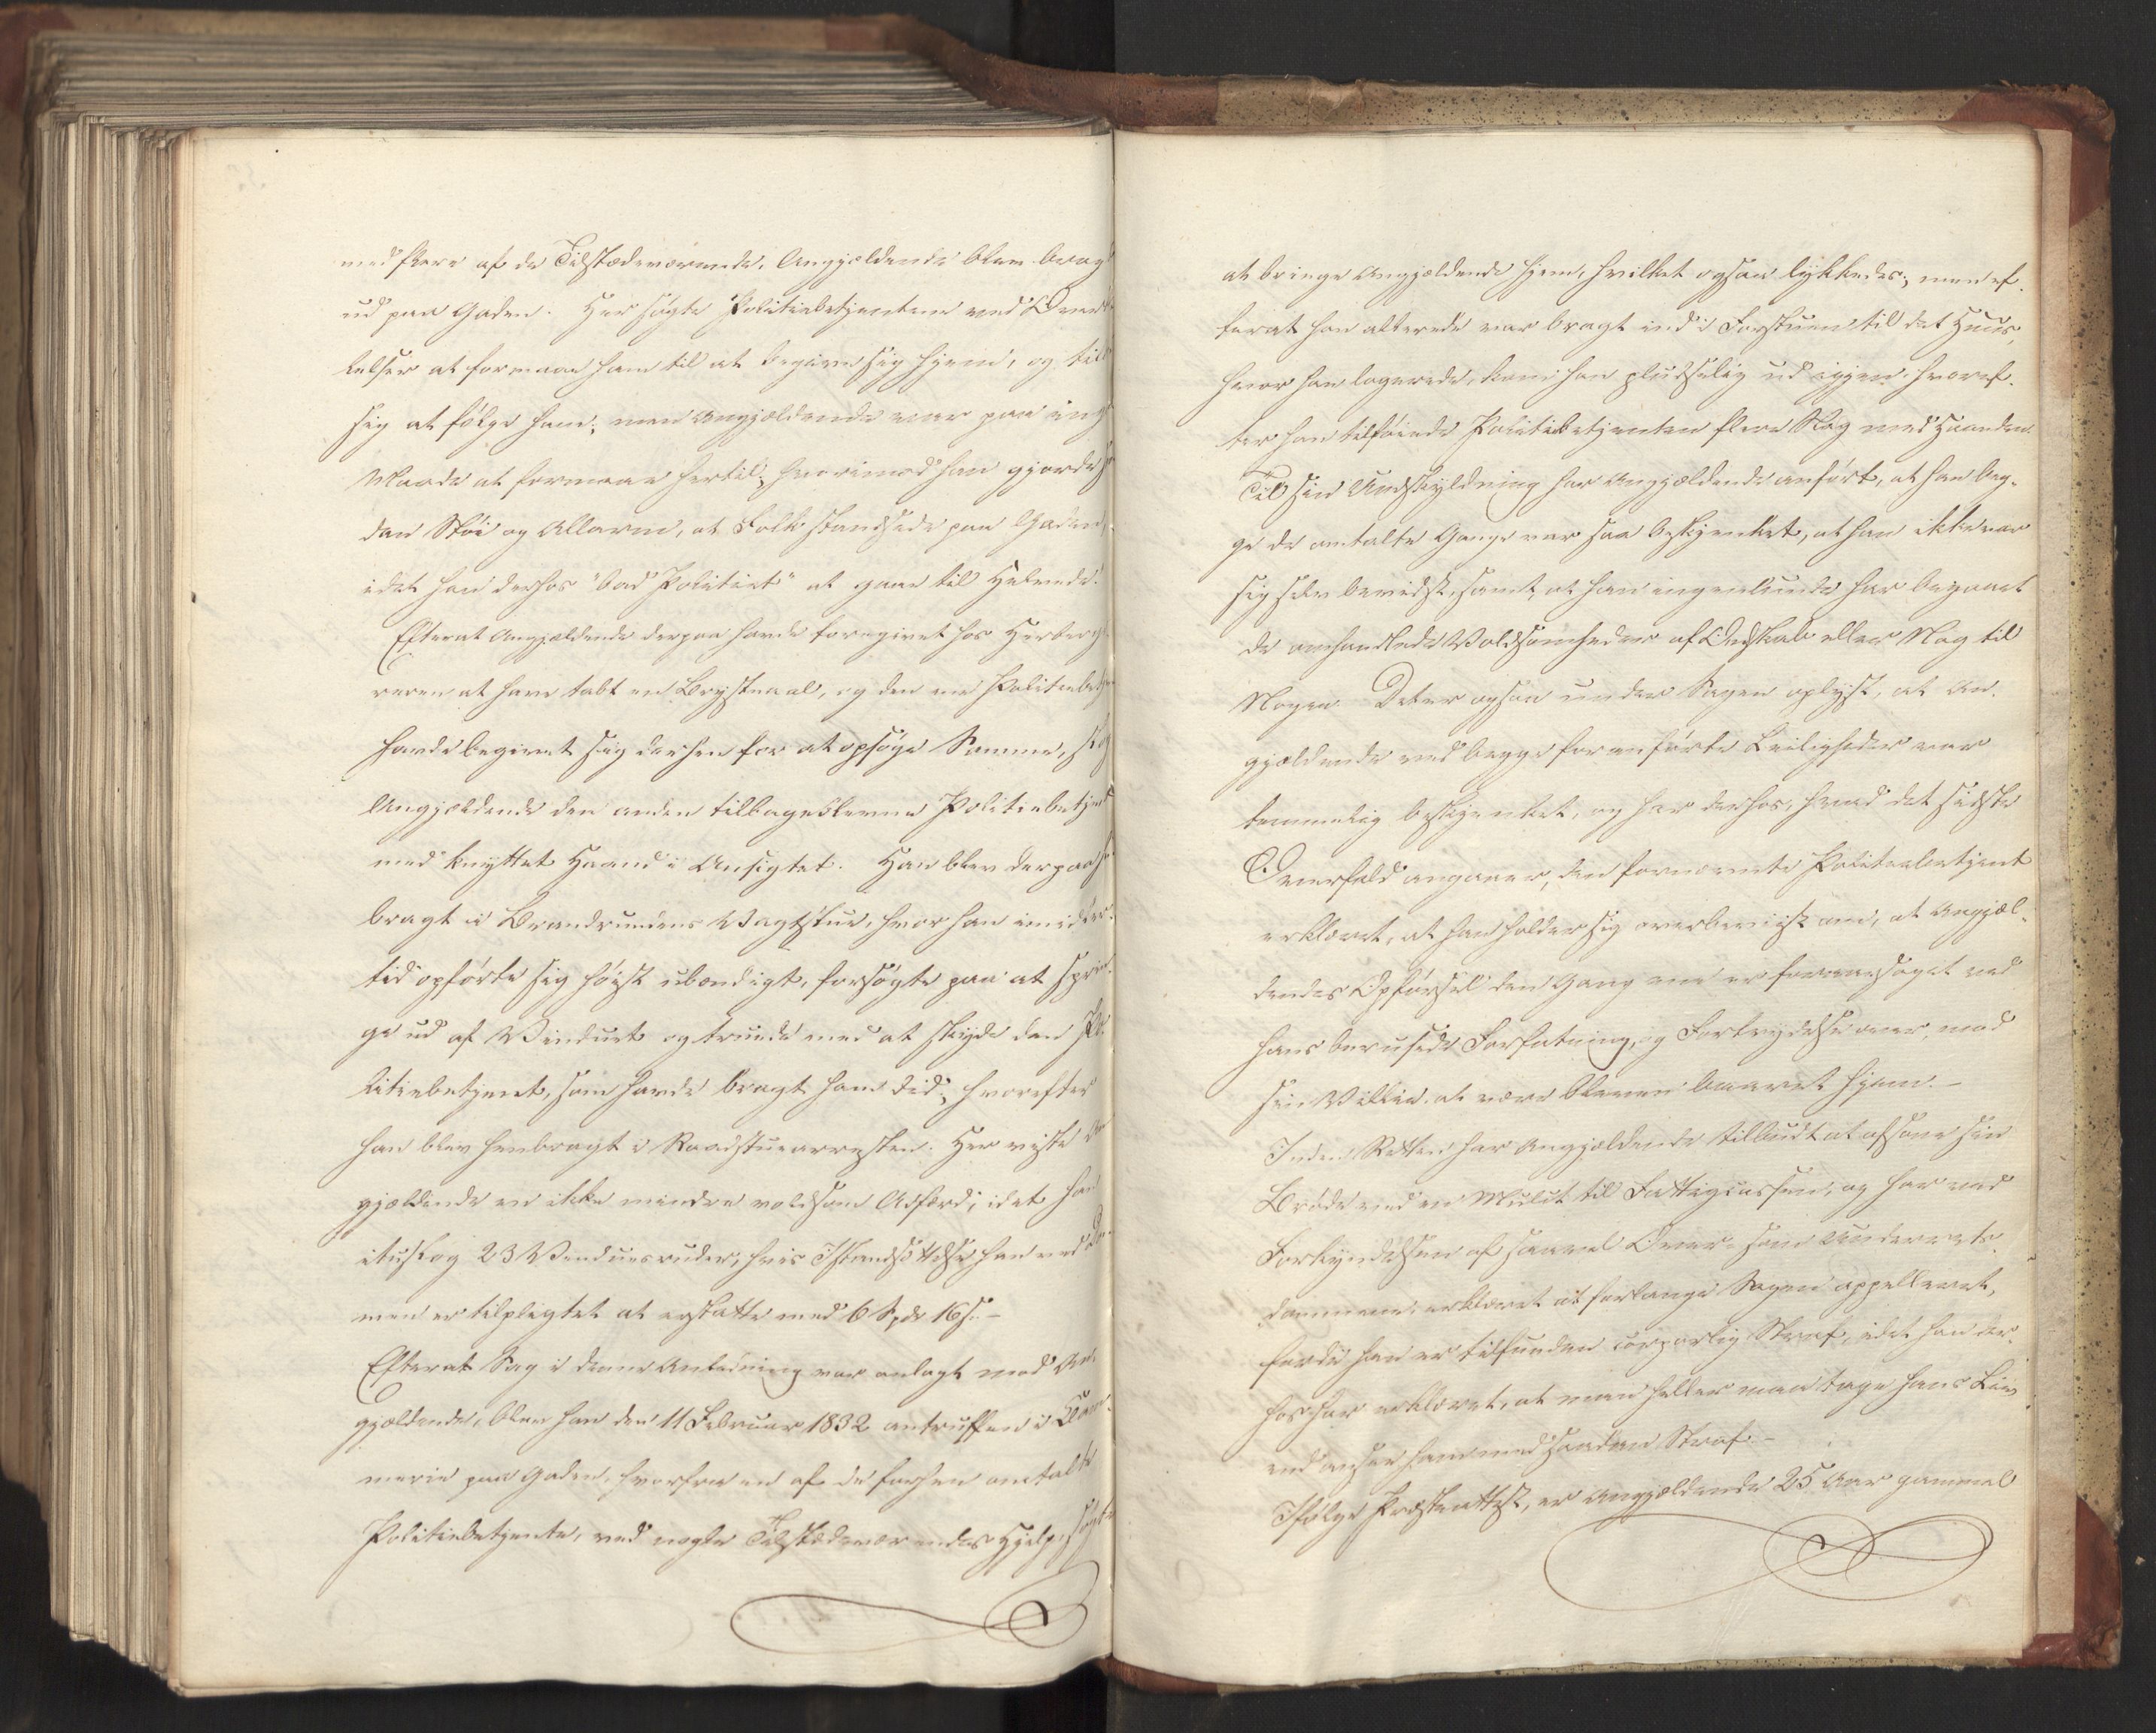 med flere af de Tilstædeværende, Angjældende blev bragt
ud paa Gaden. Her søgte Politiebetjentene ved Overta-
lelser at formaae ham til at begive sig hjem, og tilbød
sig at følge ham; men Angjældende var paa ingen
Maade at formaae hertil; hvorimod han gjorde saa-
dan Støi og Allarm, at Folk standsede paa Gaden,
idet han derhos "bad Politiet" at gaae til Helvede.
Efterat Angjældende derpaa havde foregivet hos Herberge-
reren at have tabt en Brystnaal, og den ene Politiebetjent
havde begivet sig derhen for at opsøge Samme, slog
Angjældende den anden tilbageblevne Politiebetjent
med knyttet Haand i Ansigtet. Han blev derpaa
bragt i Brandvundens Vagtstue, hvor han imidler-
tid opførte sig høist ubændigt, forsøgte paa at sprin-
ge ud af Vinduet og truede med at skyde den Po-
litiebetjent, som havde bragt ham did; hvorefter
han blev henbragt i Raadstuearresten. Her viste An-
gjældende en ikke mindre voldsom Adfærd, idet han
ituslog 23 Vinduesruder, hvis Istandsættelse han ved Dom-
men er tilpligtet at erstatte med 6 Spd 16 s. -
Efterat Sag i denne Anledning var anlagt mod An-
gjældende, blev han den 11 Februar 1832 antruffen i Klam-
merie paa Gaden, hvorfra en af de forhen omtalte
Politiebetjente, ved nogle Tilstædeværendes Hjelp, søgte
at bringe Angjældende hjem, hvilket ogsaa lykkedes; men ef-
terat han allerede var bragt ind i Forstuen til det Huus,
hvor han logerede, kom han pludselig ud igjen, hvoref-
ter han tilføiede Politiebetjenten flere Slag med Haanden.
Til sin Undskyldning har Angjældende anført, at han beg-
ge de omtalte Gange var saa beskjenket, at han ikke var
sig selv bevidst, samt at han ingenlunde har begaaet
de omhandlede Voldsomheder af Ondskab eller Nag til
Nogen. Det er ogsaa under Sagen oplyst, at An-
gjældende ved begge foranførte Leiligheder var
temmelig beskjenket, og har derhos, hvad det sidste
Overfald angaaer, den fornærmede Politiebetjent
erklæret, at han holder sig overbeviist om, at Angjæl-
dendes Opførsel den Gang ene er foraarsaget ved
hans berusede Forfatning, og Fortrydelse over, mod
sin Villie at være bleven baaret hjem. -
Inden Retten har Angjældende tilbudt at afsone sin
Brøde med en Mulct til Fattigcassen, og har ved
Forkyndelsen af saavel Over- som Underrets-
dommene erklæret at forlange Sagen appelleret,
fordi han er tilfunden corporlig Straf, idet han der-
hos har erklæret, at man heller maa tage hans Liv
end ansee ham med saadan Straf. -
Ifølge Præsteattest, er Angjældende 25 Aar gammel